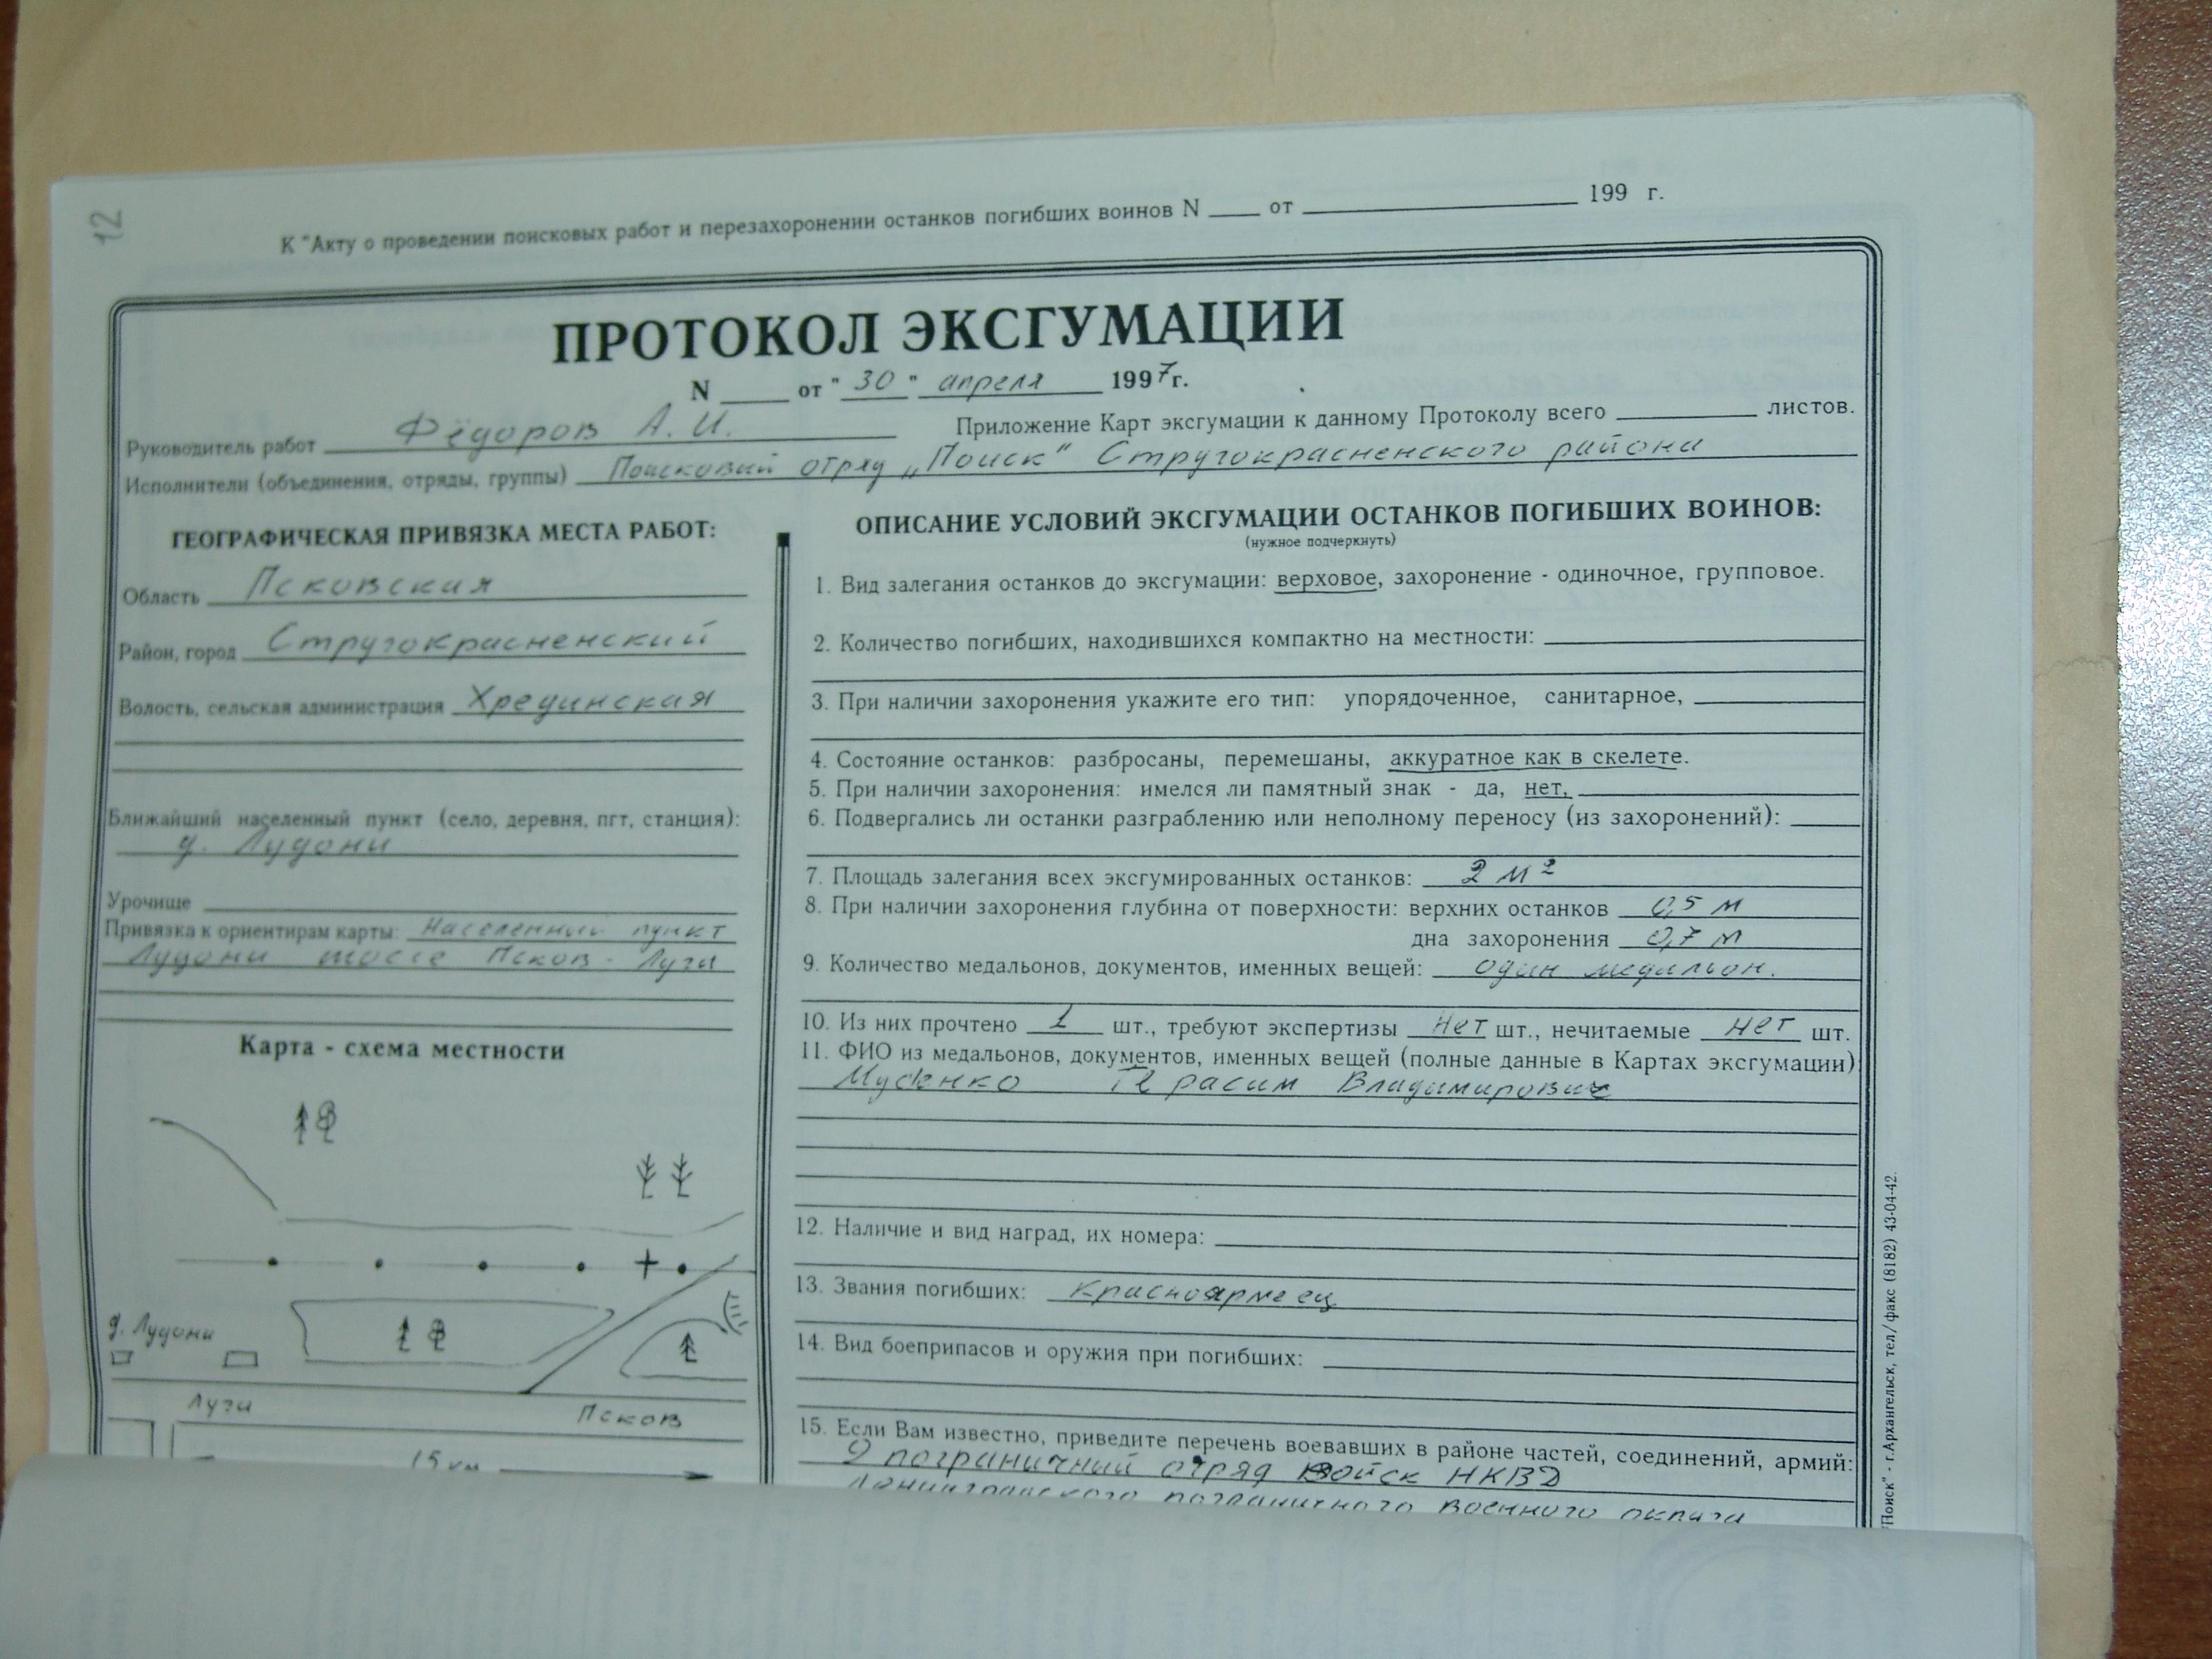 12
К "Акту о проведении поисковых работ и перезахоронении останков погибших воинов N ____ от ____ 199 г.
ПРОТОКОЛ ЭКСГУМАЦИИ
N ____ от "30" апреля 1997 г.
Руководитель работ Фёдоров А.И.
Приложение Карт эксгумации к данному Протоколу всего ____ листов.
Исполнители (объединения, отряды, группы) Поисковый отряд „Поиск" Стругокрасненского района
ГЕОГРАФИЧЕСКАЯ ПРИВЯЗКА МЕСТА РАБОТ:
Область Псковская
Район, город Стругокрасненский
Волость, сельская администрация Хрединская
Ближайший населенный пункт (село, деревня, пгт, станция):
д. Лудони
Урочище
Привязка к ориентирам карты: Населенный пункт
Лудони шоссе Псков - Луга
Карта - схема местности
д. Лудони
Луга Псков
15 км
ОПИСАНИЕ УСЛОВИЙ ЭКСГУМАЦИИ ОСТАНКОВ ПОГИБШИХ ВОИНОВ:
(нужное подчеркнуть)
1. Вид залегания останков до эксгумации: верховое, захоронение - одиночное, групповое.
2. Количество погибших, находившихся компактно на местности:
3. При наличии захоронения укажите его тип: упорядоченное, санитарное,
4. Состояние останков: разбросаны, перемешаны, аккуратное как в скелете.
5. При наличии захоронения: имелся ли памятный знак - да, нет,
6. Подвергались ли останки разграблению или неполному переносу (из захоронений):
7. Площадь залегания всех эксгумированных останков: 2 м²
8. При наличии захоронения глубина от поверхности: верхних останков 0,5 м
дна захоронения 0,7 м
9. Количество медальонов, документов, именных вещей: один медальон.
10. Из них прочтено 1 шт., требуют экспертизы нет шт., нечитаемые нет шт.
11. ФИО из медальонов, документов, именных вещей (полные данные в Картах эксгумации)
Герасим Владимирович
12. Наличие и вид наград, их номера:
13. Звания погибших: красноармеец
14. Вид боеприпасов и оружия при погибших:
15. Если Вам известно, приведите перечень воевавших в районе частей, соединений, армий:
9 пограничный отряд войск НКВД
Ленинградского пограничного военного округа
"Поиск" - г.Архангельск, тел/факс (8182) 43-04-42.